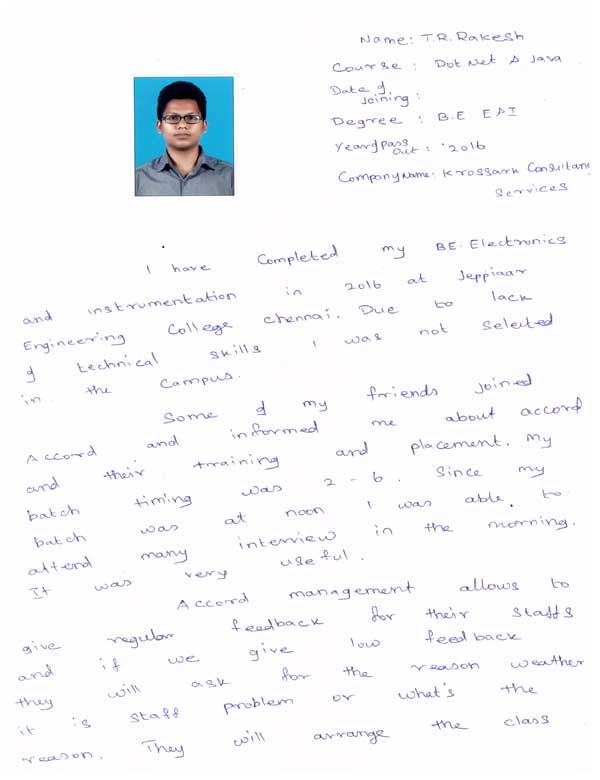 Name: T.R. Rakesh
Course : Dot Net & Java
Date of
Joining :
Degree : B.E E&I
Year of Pass
Out : '2016
Company Name: Krossark Consultan
Services
I have completed my BE. Electronics
and instrumentation in 2016 at Jeppiaar
Engineering College Chennai. Due to lack
of technical skills I was not selected
in the Campus.
Some of my friends joined
Accord and informed me about accord
and their training and placement. My
batch timing was 2 - 6. Since my
batch was at noon I was able to
attend many interview in the morning.
It was very useful.
Accord management allows to
give regular feedback for their staffs
and if we give low feedback
they will ask for the reason weather
it is staff problem or what's the
reason. They will arrange the class